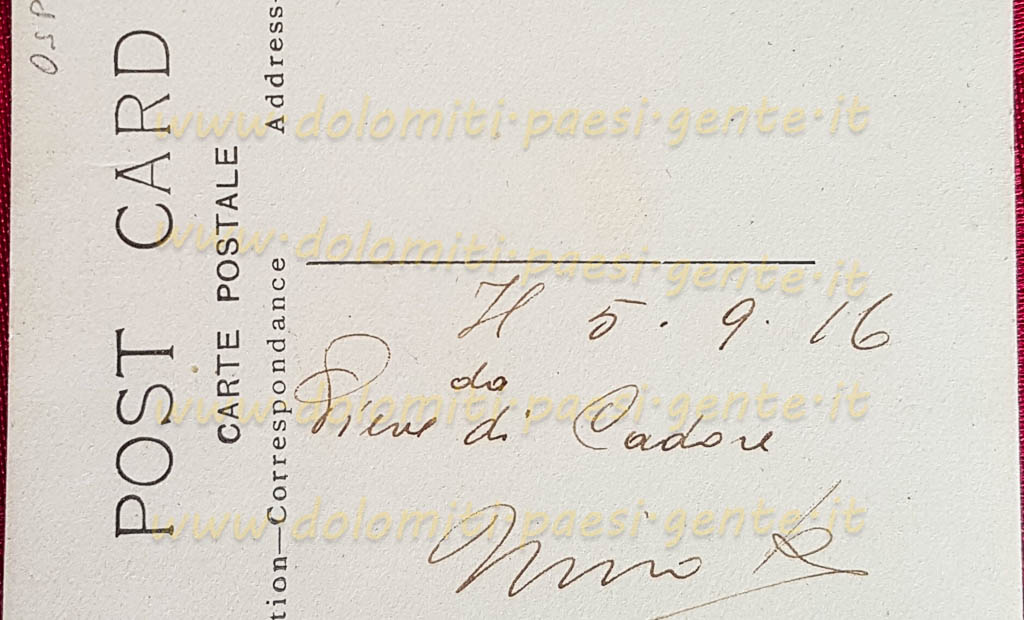 POST CARD
CARTE POSTALE
tion—Correspondance Address-
Il 5.9.16
da
Pieve di Cadore
www.dolomiti-paesi-gente.it
www.dolomiti-paesi-gente.it
www.dolomiti-paesi-gente.it
www.dolomiti-paesi-gente.it